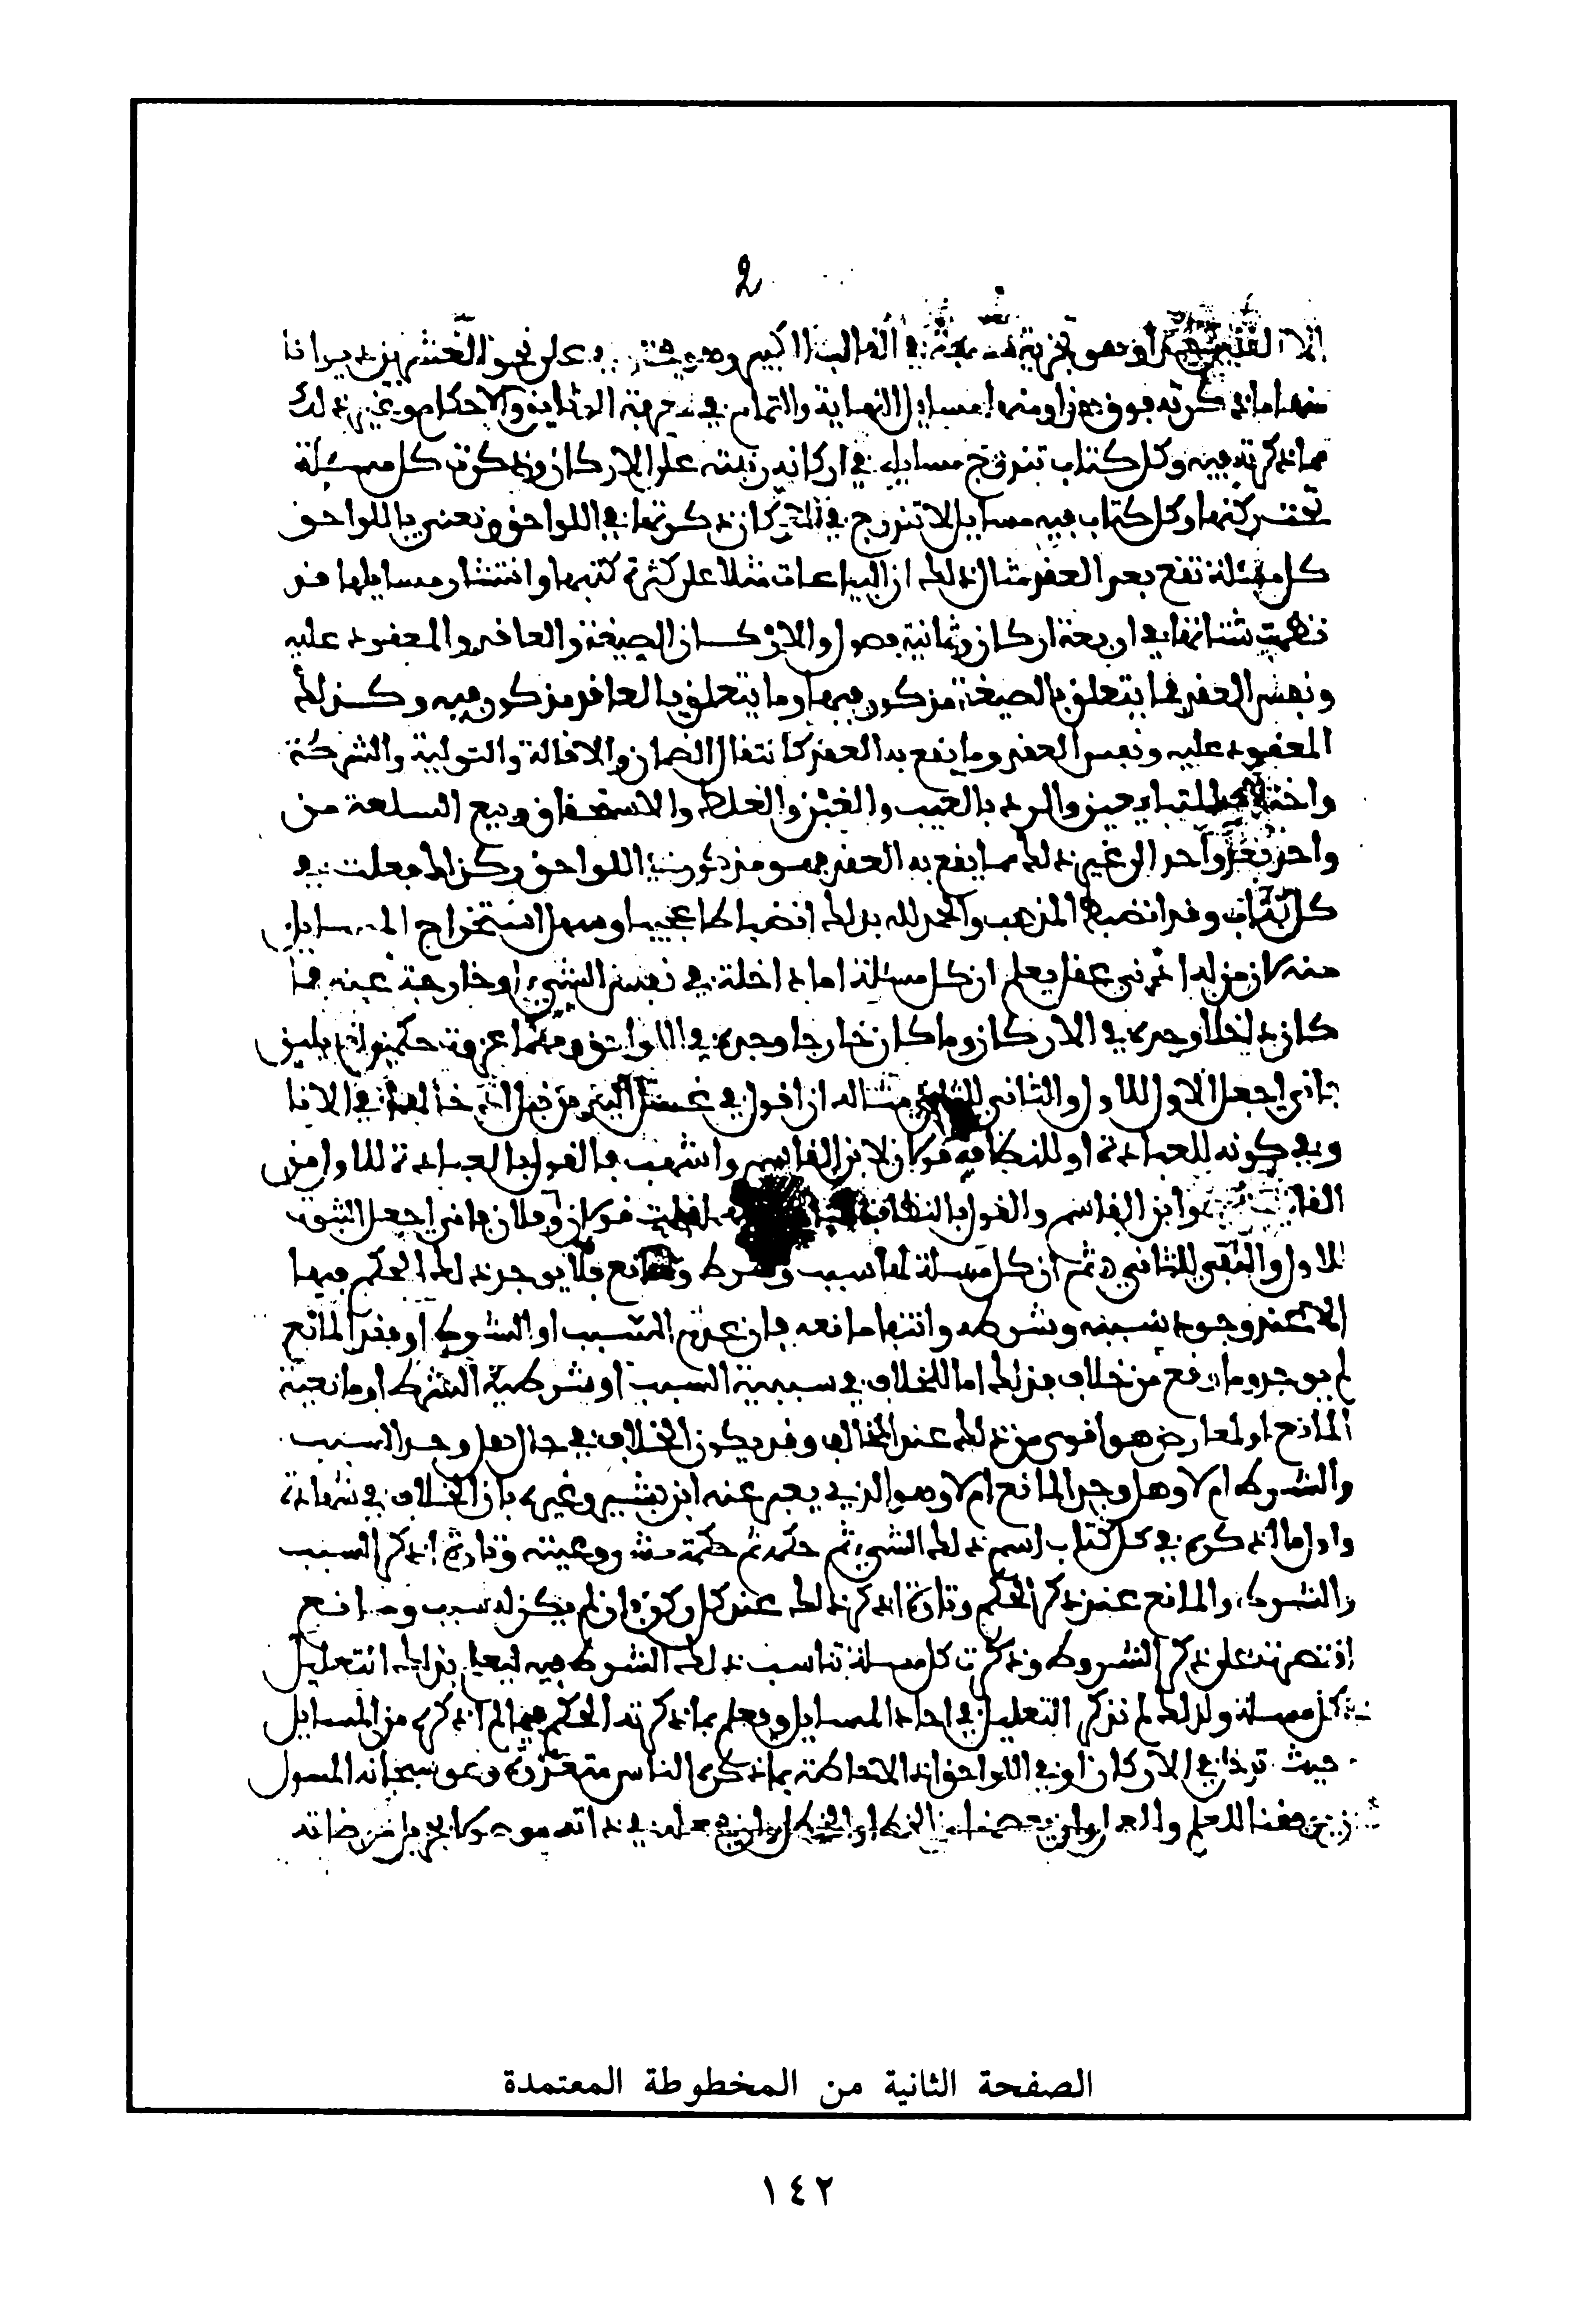 2
في الغالب على نحو العشرين ديوانا
منها ما ذكرته فوق هذا ومنها مسايل النهاية والتمام في معرفة الوثايق والاحكام وغير ذلك
مما ذكرته فيه وكل كتاب تندرج مسايله في اركانه رتبته على الاركان وذكرت كل مسئلة
تحت ركنها وكل كتاب فيه مسايل لا تندرج في الاركان ذكرتها في اللواحق ونعني باللواحق
كل مسئلة تقع بعد العقد مثال ذلك ان البياعات مثلا على كثرة كتبها وانتشار مسايلها قد
نظمت شتاتها في اربعة اركان وثمانية فصول والاركان الصيغة والعاقد والمعقود عليه
ونفس العقد فما يتعلق بالصيغة مذكور فيها وما يتعلق بالعاقد مذكور فيه وكذلك
المعقود عليه ونفس العقد وما يقع بعد العقد كانتقال الضمان والاقالة والتولية والشركة
المتبايعين والرد بالعيب والغبن والغلط والاستحقاق وبيع السلعة من
واحد بعد واحد الى غير ذلك مما يقع بعد العقد فهو مذكور في اللواحق وكذلك فعلت في
كل كتاب وقد انضبط المذهب والحمد لله بذلك انضباطا عجيبا وسهل استخراج المسايل
منه لمن له ادنى عقل يعلم ان كل مسئلة اما داخلة في نفس الشيء او خارجة عنه فما
كان داخلا وجده في الاركان وما كان خارجا وجده في اللواحق ومهما عزوت حكمين لقايلين
فاني اجعل الاول للاول والثاني للثاني مثاله ان اقول في غسل اليد من قبل ادخالها في الانا
وفي كونه للعبادة او للنظافة قولان لابن القاسم واشهب فالقول بالعبادة للاول من
وابن القاسم والقول بالنظافة قلت قولان وفلان فاني اجعل الثبوت
للاول والنفي للثاني ثم ان كل مسئلة لها سبب وشرط ومانع فلا يوجد ذلك الحكم فيها
الا عند وجود سببه وشرطه وانتفا مانعه فان عدم السبب او الشرط او فقد المانع
لم يوجد وما وقع من خلاف فذلك اما للخلاف في سببية السبب او شرطية الشرط او مانعية
المانع او لمعارض هو اقوى من ذلك عند المخالف وقد يكون الخلاف في حال هل وجد السبب
والشرط ام لا وهل وجد المانع ام لا وهو الذي يعبر عنه ابن بشير وغيره بان الخلاف في شهادة
واول ما اذكره في كل كتاب اسم ذلك الشيء ثم حكمه ثم حكمة مشروعيته وتارة اذكر السبب
والشرط والمانع عند ذكر الحكم وتارة اذكر ذلك عند كل ركن فان لم يكن له سبب ومانع
اقتصرت على ذكر الشروط وذكرت كل مسئلة تناسب ذلك الشرط فيه ليعلم بذلك التعليل
كل مسئلة ولذلك لم نذكر التعليل في احاد المسايل ويعلم بما ذكرته الحكم فيما لم اذكره من المسايل
حيث في الاركان او في اللواحق اذ الاحاطة بما ذكره الناس متعذرة وهو سبحانه المسول
الصفحة الثانية من المخطوطة المعتمدة
١٤٢